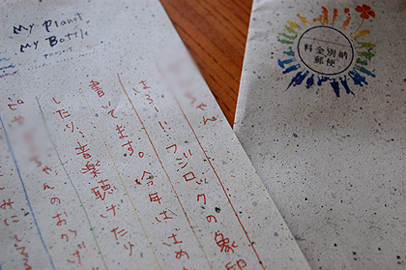 My Planet
My Bottle
PROJECT
ちゃん
はろー!! フジロックの象印
書いてます。今年はじめ
したり、音楽聴けたり
ちゃんのおかげ
料金別納
郵便